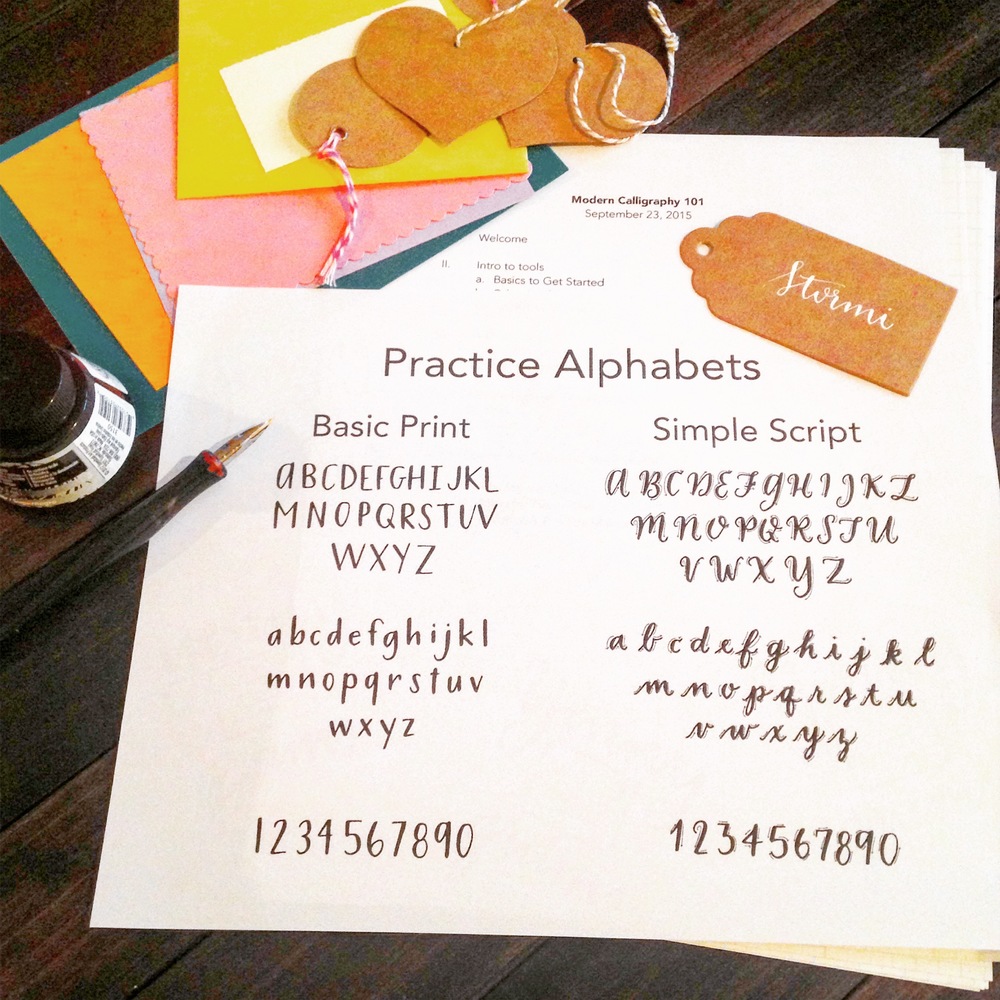 Modern Calligraphy 101
September 23, 2015
Welcome
II. Intro to tools
a. Basics to Get Started
Stormi
Practice Alphabets
Basic Print
ABCDEFGHIJKL
MNOPQRSTUV
WXYZ
abcdefghijkl
mnopqrstuv
wxyz
1234567890
Simple Script
ABCDEFGHIJKL
MNOPQRSTU
VWXYZ
abcdefghijkl
mnopqrstu
vwxyz
1234567890